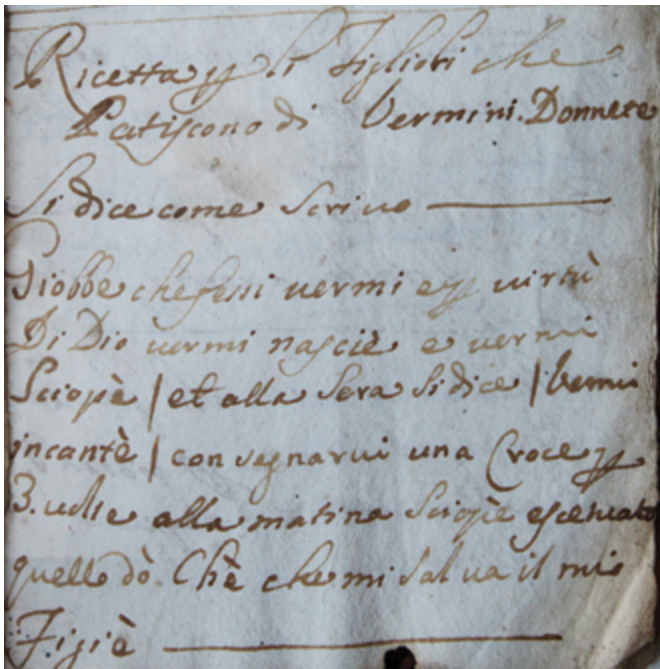 Ricetta p li Figlioli che
Patiscono di Vermini. Donnete
Si dice come Scrivo
Giobbe che fessi vermi e p virtù
Di Dio vermi nasciè e vermi
Sciopè / et alla Sera Si dice / Vermi
incantè / con segnarvi una Croce p
3. volte alla matina Sciopiè
quello dò Chè che mi Salva il mio
Figiè